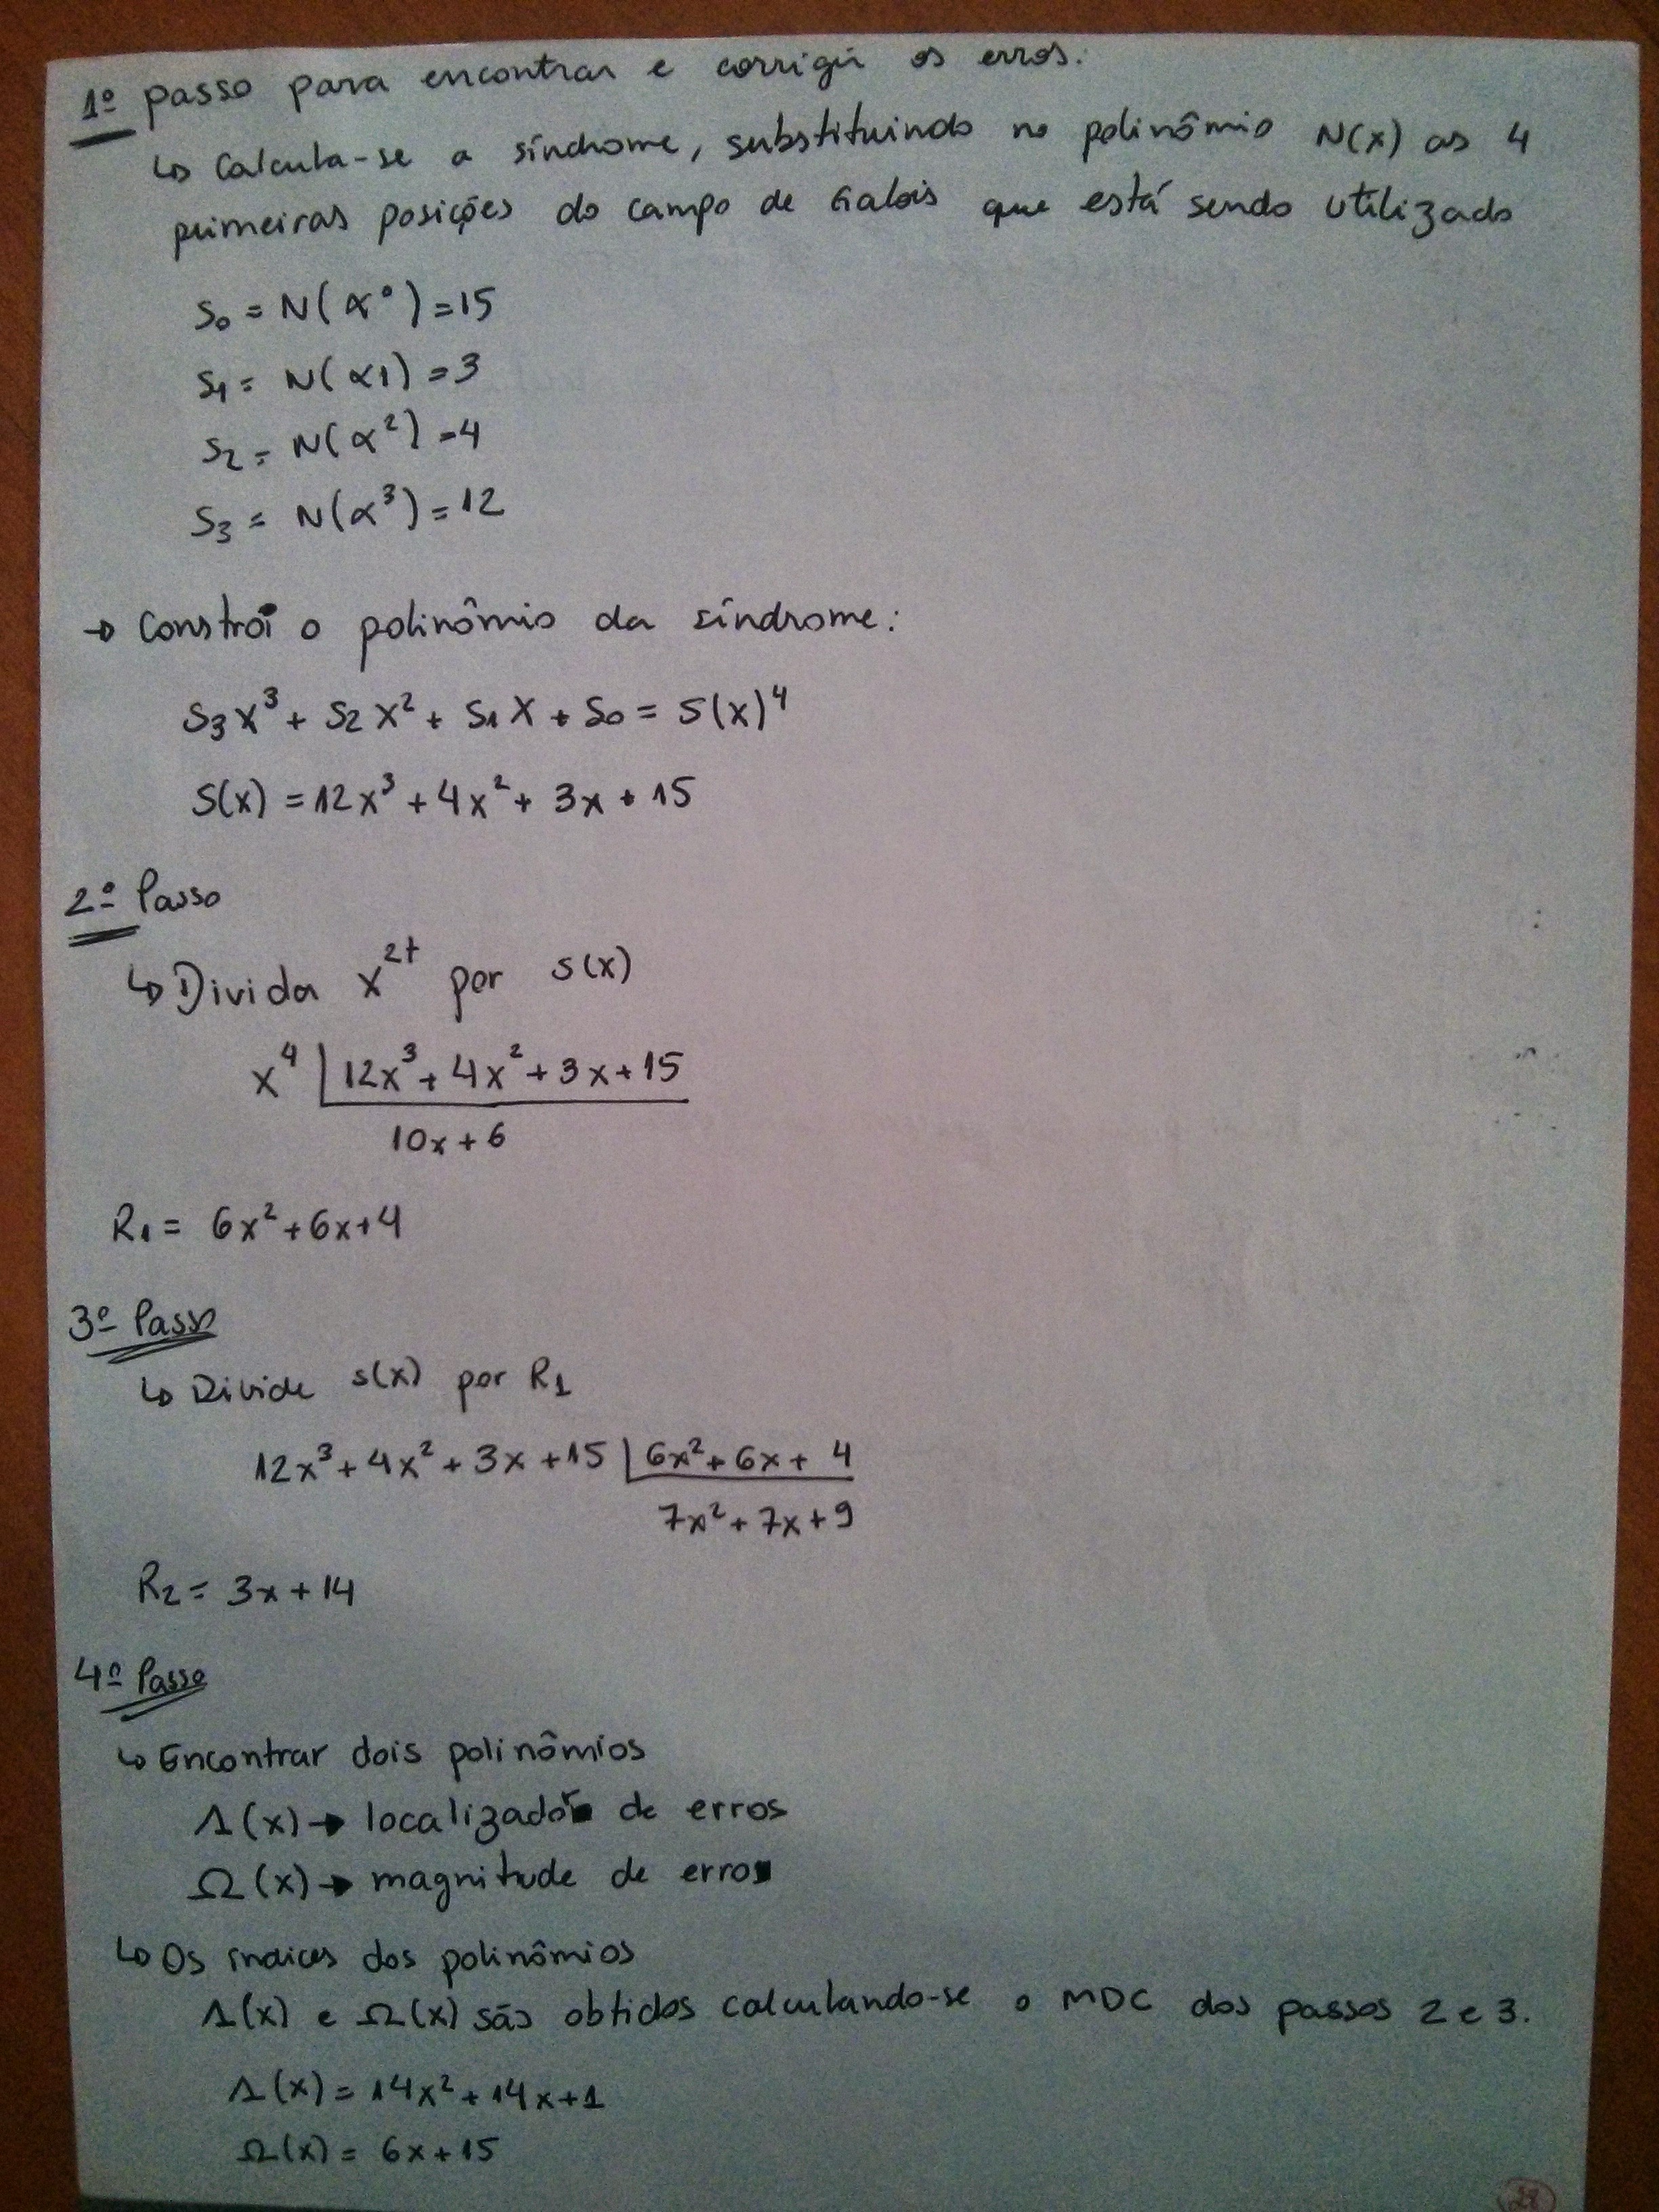 1º passo para encontrar e corrigir os erros:
↳ Calcula-se a síndrome, substituindo no polinômio N(x) as 4
primeiras posições do campo de Galois que está sendo utilizado
S₀ = N(α⁰) = 15
S₁ = N(α1) = 3
S₂ = N(α²) = 4
S₃ = N(α³) = 12
→ Constrói o polinômio da síndrome:
S₃x³ + S₂x² + S₁x + S₀ = S(x)⁴
S(x) = 12x³ + 4x² + 3x + 15
2º Passo
↳ Divida x²ᵗ por S(x)
x⁴ | 12x³ + 4x² + 3x + 15
10x + 6
R₁ = 6x² + 6x + 4
3º Passo
↳ Divide S(x) por R₁
12x³ + 4x² + 3x + 15 | 6x² + 6x + 4
7x² + 7x + 9
R₂ = 3x + 14
4º Passo
↳ Encontrar dois polinômios
Λ(x) → localizador de erros
Ω(x) → magnitude de erros
↳ Os índices dos polinômios
Λ(x) e Ω(x) são obtidos calculando-se o MDC dos passos 2 e 3.
Λ(x) = 14x² + 14x + 1
Ω(x) = 6x + 15